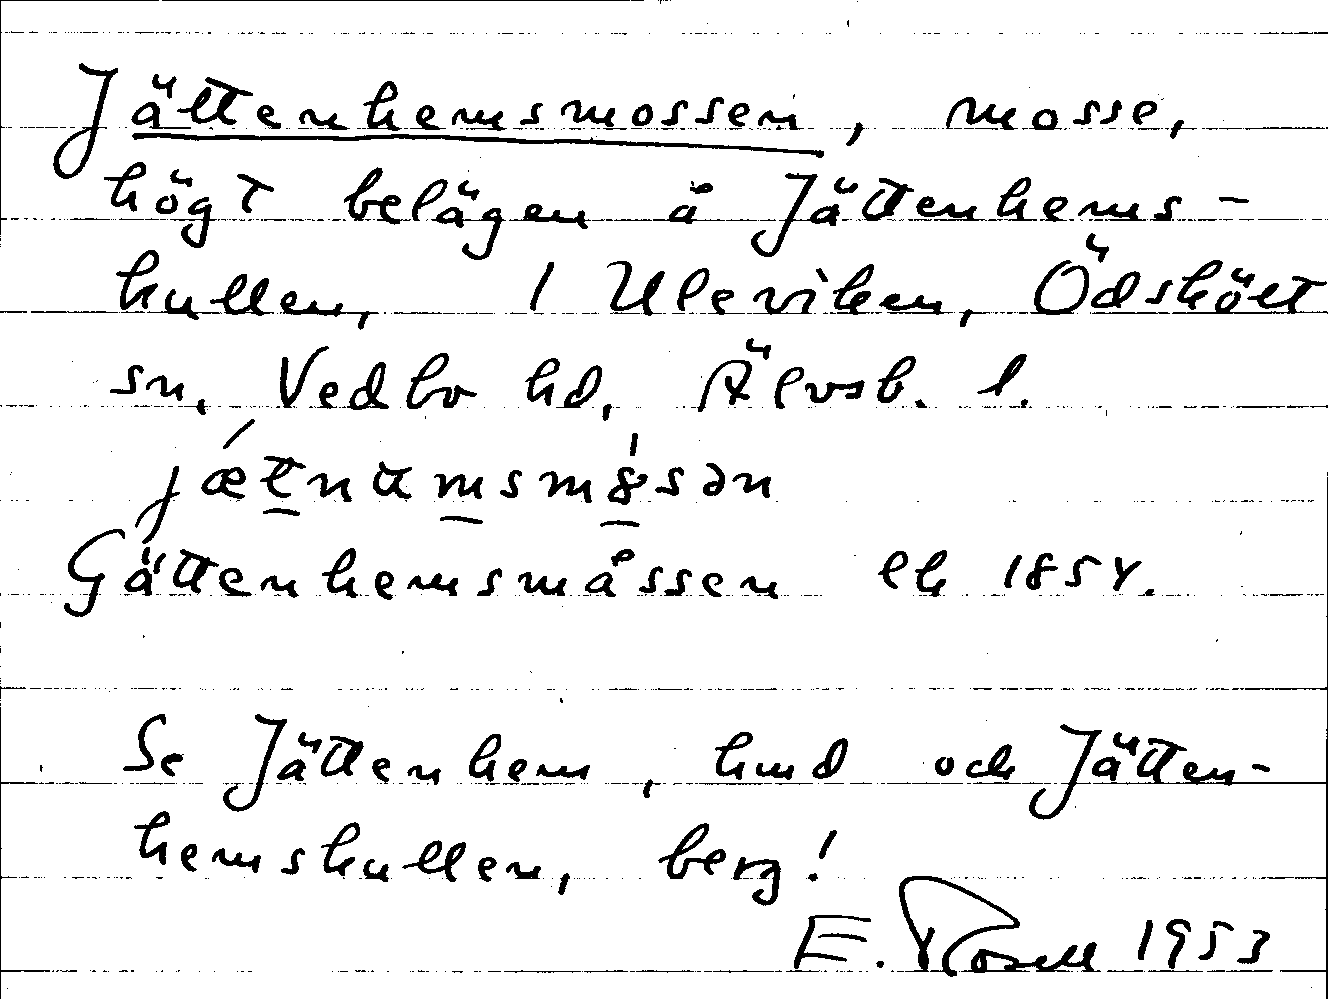 Jättenhemsmossen, mosse,
högt belägen å Jättenhems-
kullen, 1 Uleviken, Ödskölt
sn, Vedbo hd, Älvsb. l.
Gättenhemsmåssen ek 1854.
Se Jättenhem, hmd och Jätten-
hemskullen, berg!
E. Rosell 1953